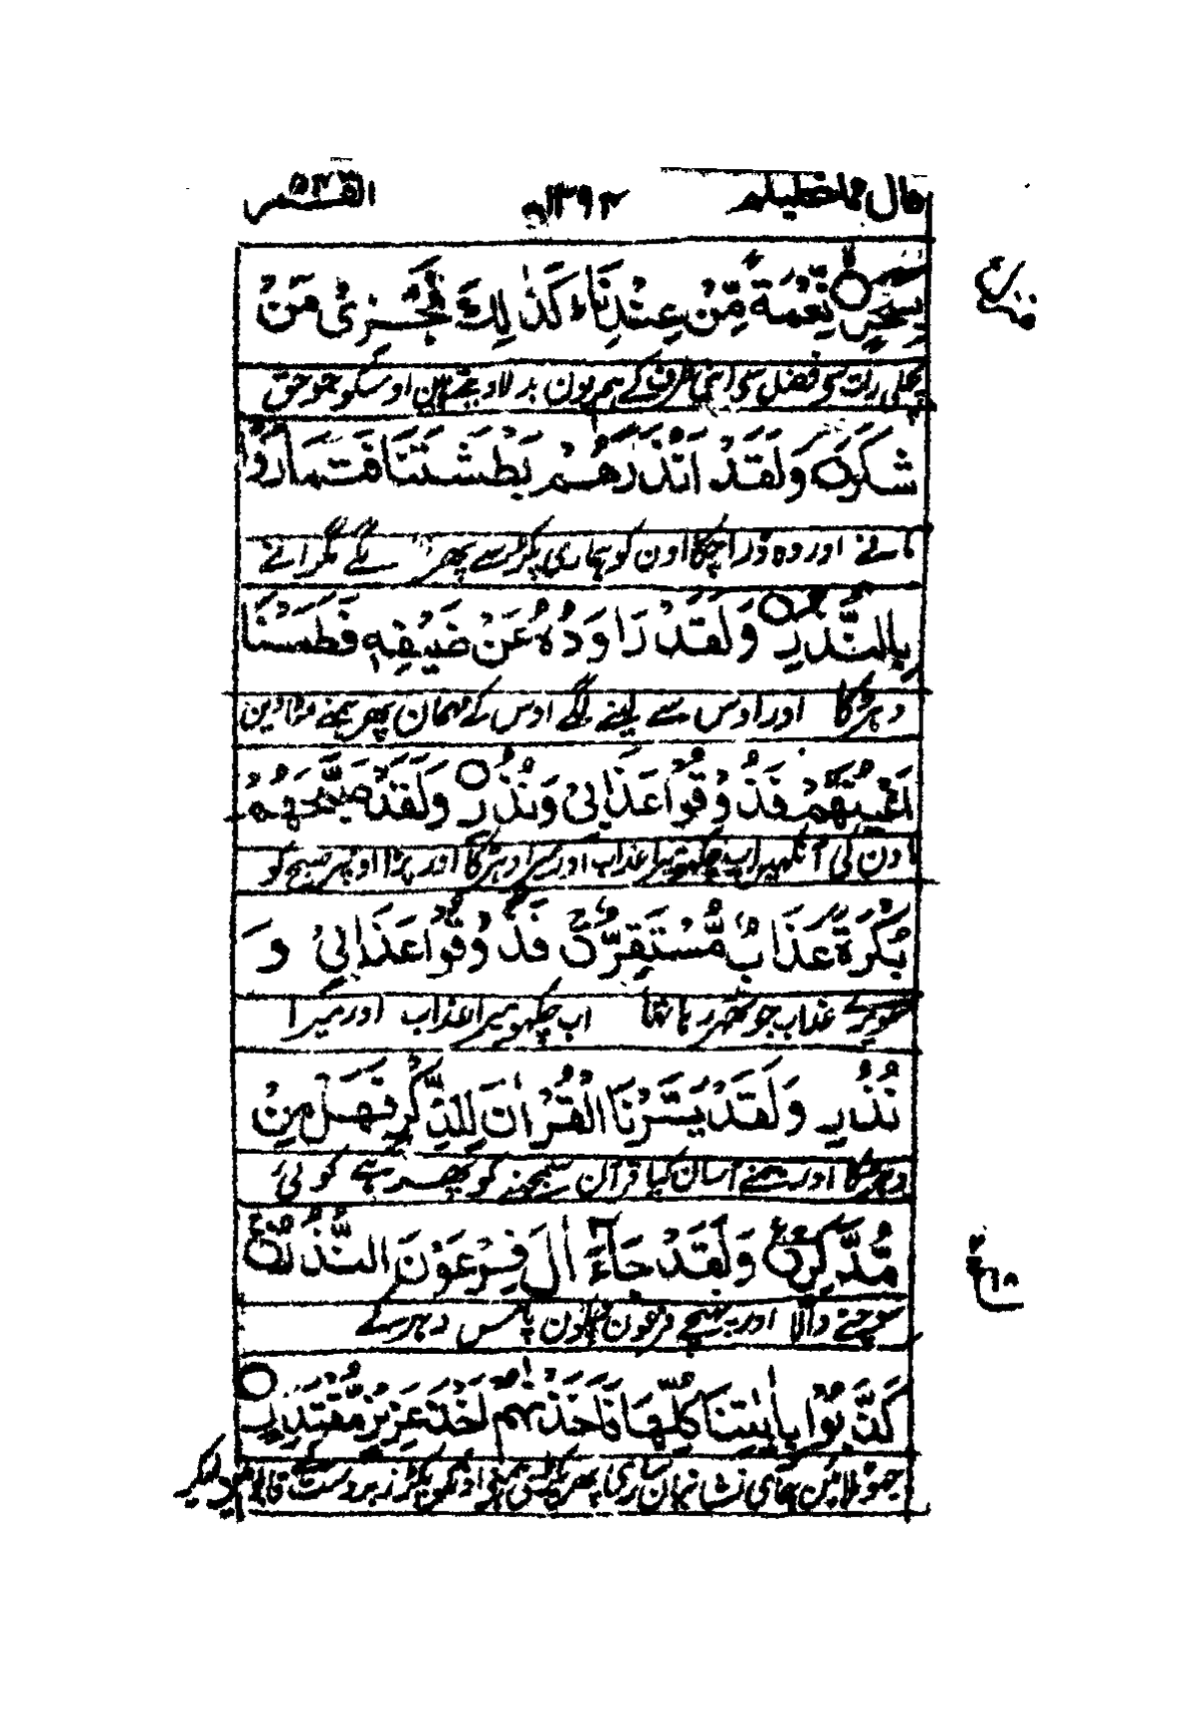 قال فما خطبکم ۱۳۹۴ القمر ۵۴
بِسَحَرٍ ○ نِّعْمَةً مِّنْ عِنْدِنَا كَذٰلِكَ نَجْزِىْ مَنْ
پچھلی رات سے فضل سے اپنی طرف کے ہم یون بدلا دیتے ہین اوسکو جو حق
شَكَرَ ○ وَلَقَدْ اَنْذَرَهُمْ بَطْشَتَنَا فَتَمَارَوْا
مانے اور وہ ڈرا چکا اون کو ہماری پکڑ سے پھر لگے مگرانے
بِالنُّذُرِ ○ وَلَقَدْ رَاوَدُوْهُ عَنْ ضَيْفِهٖ فَطَمَسْنَا
دہڑکا اور اوس سے لینے لگے اوس کے مہمان پھر ہمنے مٹا دین
اَعْيُنَهُمْ فَذُوْقُوْا عَذَابِىْ وَنُذُرِ ○ وَلَقَدْ صَبَّحَهُمْ
اون کی آنکھین اب چکھو میرا عذاب اور میرا دہڑکا اور پڑا اونپر صبح کو
بُكْرَةً عَذَابٌ مُّسْتَقِرٌّ ○ فَذُوْقُوْا عَذَابِىْ وَ
سویرے عذاب جو ٹھہر رہا تھا اب چکھو میرا عذاب اور میرا
نُذُرِ وَلَقَدْ يَسَّرْنَا الْقُرْاٰنَ لِلذِّكْرِ فَهَلْ مِنْ
دہڑکا اور ہمنے آسان کیا قرآن سمجھنے کو پھر ہے کوئی
مُّدَّكِرٍ ○ وَلَقَدْ جَآءَ اٰلَ فِرْعَوْنَ النُّذُرُ ○
سوچنے والا اور پہنچے فرعون والون پاس دہڑکے
كَذَّبُوْا بِاٰيٰتِنَا كُلِّهَا فَاَخَذْنٰهُمْ اَخْذَ عَزِيْزٍ مُّقْتَدِرٍ ○
جھوٹلائین ہماری نشانیان ساری پھر پکڑی ہمنے اونکو پکڑ زبردست کے قابو مین لیکر